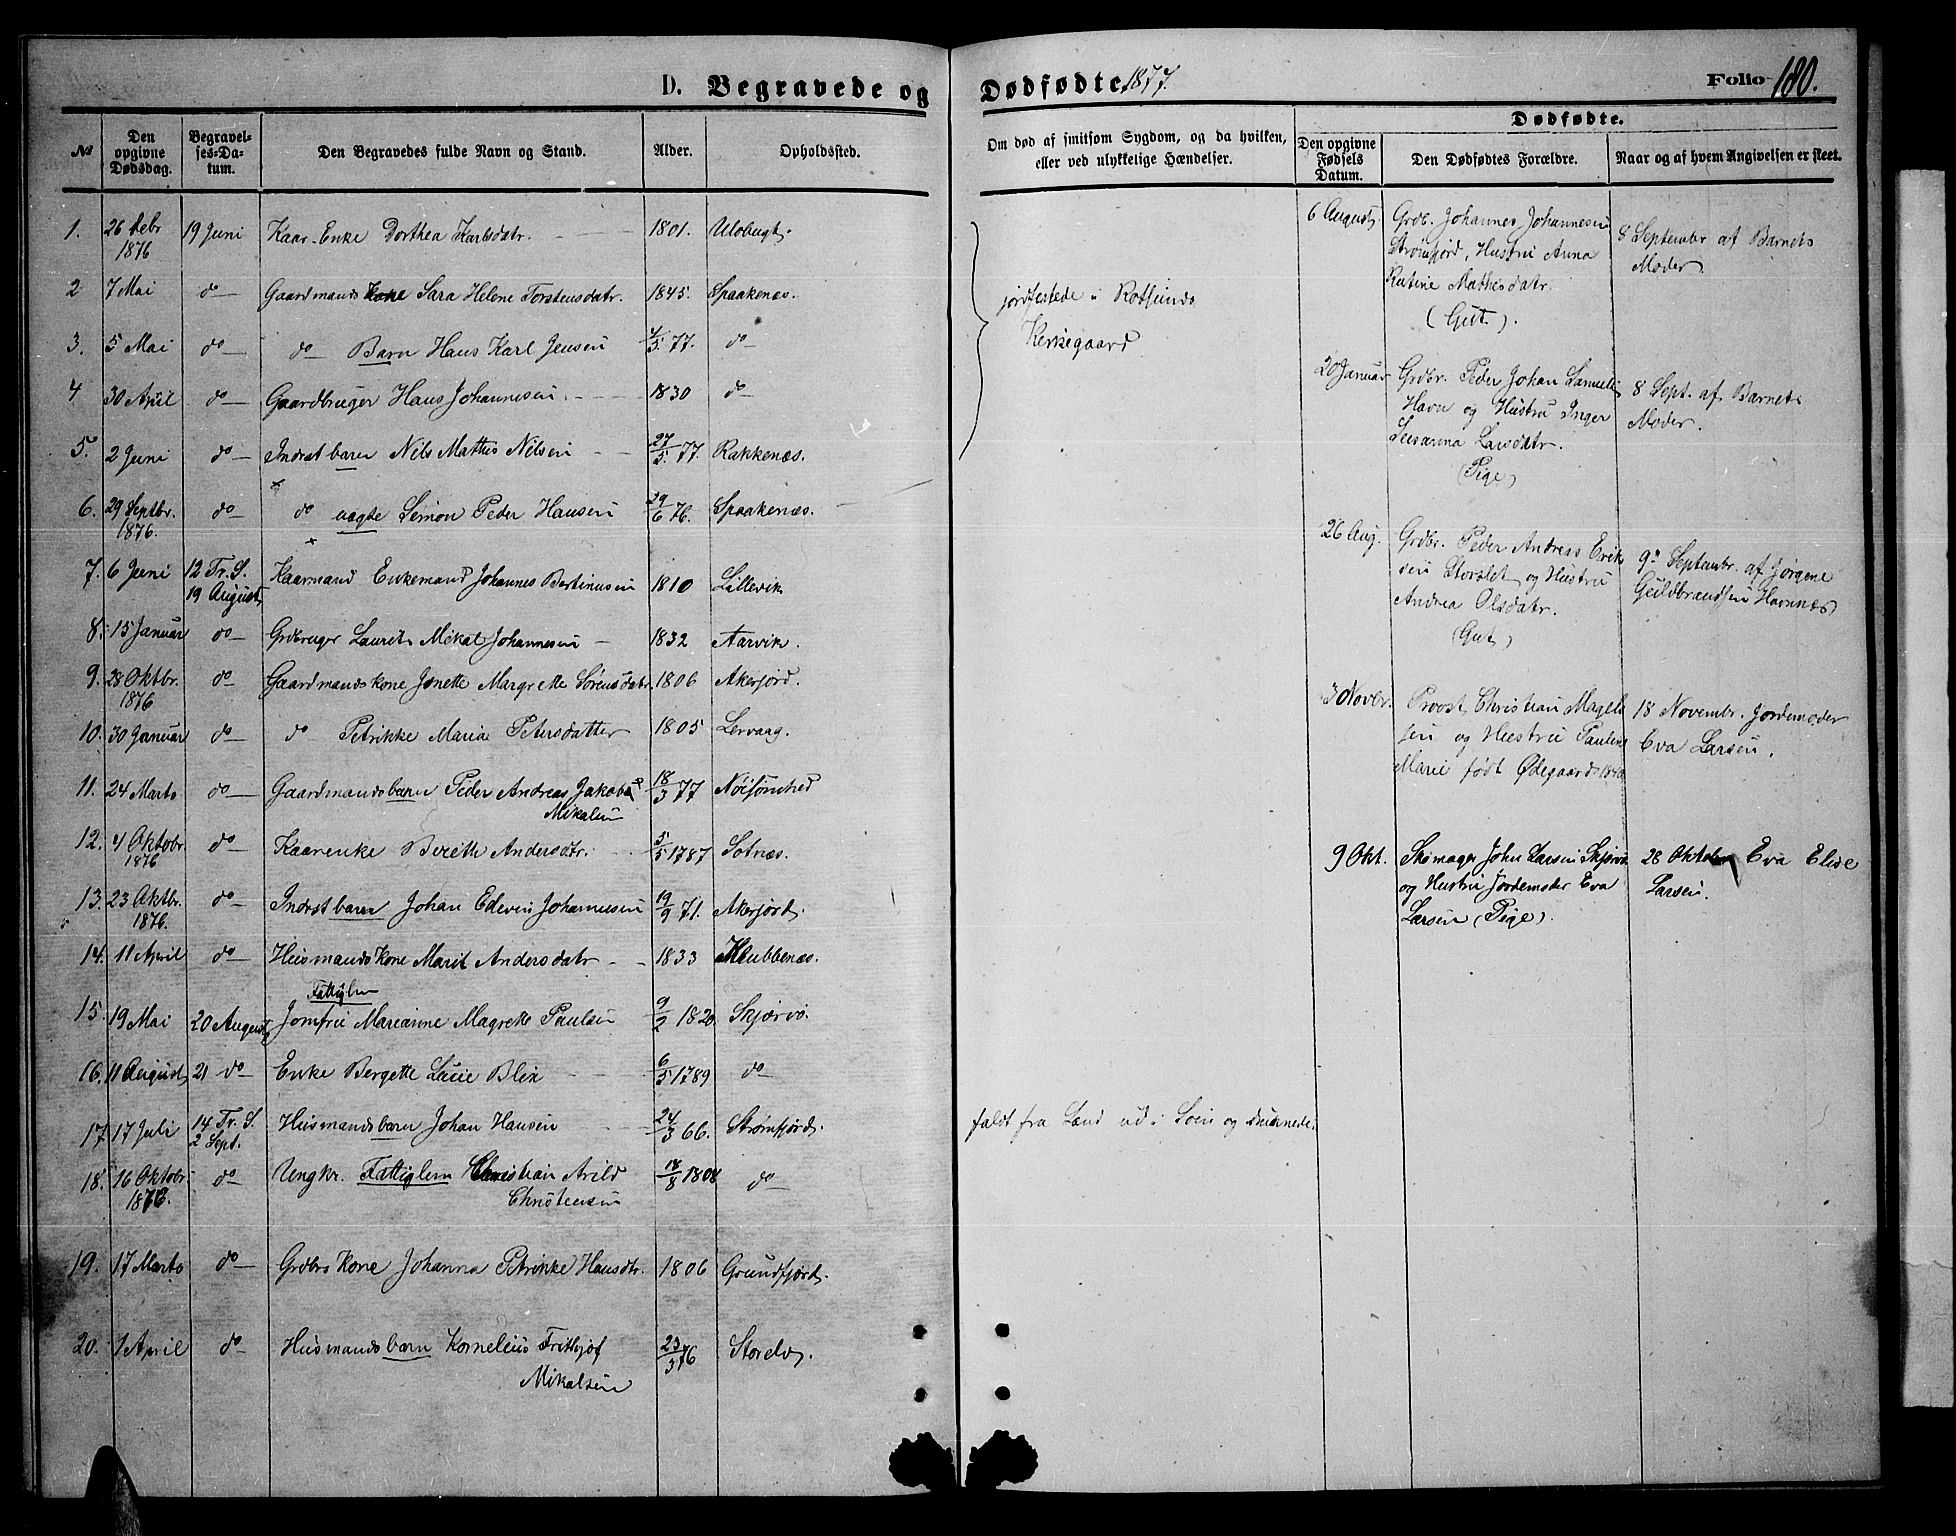 D. Begravede og Dødfødte 1877. Folio 180.
№
Den opgivne Dødsdag.
Begravelses-Datum.
Den Begravedes fulde Navn og Stand.
Alder.
Opholdssted.
Om død af smitsom Sygdom, og da hvilken, eller ved ulykkelige Hændelser.
Dødfødte.
Den opgivne Fødsels Datum.
Den Dødfødtes Forældre.
Naar og af hvem Angivelsen er skeet.
1. 26 Febr 1876 19 Juni Kaar-Enke Dorthea Karlsdatr. 1801. Uløbugt.
2 7 Mai do Gaardmands Kone Sara Helene Torstensdatr. 1845. Spaakenæs.
3. 5 Mai do do Barn Hans Karl Jensen 4/5 77. do
4 30 April do Gaardbruger Hans Johannesen. 1830 do
5. 2 Juni do Indrst barn Nils Mathis Nilsen 27/5 77. Rakkenæs.
6. 29 Septbr. 1876. do do uægte Simon Peder Hansen 29/6 76. Spaakenæs.
7. 6 Juni 12 Tr. S. 19 August Kaarmand Enkemand Johannes Bertinusen 1810 Lillevik
8. 15 Januar do Grdbruger Laurits Mikal Johannesen 1832 Aarvik.
9. 28 Oktbr. 1876 do Gaardmandskone Jonette Margrette Sørensdatr. 1806 Akerfjord.
10. 30 Januar do do Petrikke Maria Petersdatter 1805 Lervaag.
11. 24 Marts do Gaardmandsbarn Peder Andreas Jakob
Mikalsen 18/3 77
12. 4 Oktobr. 1876 do Kaarenke Bereth Andersdtr. 5/5 1787 Sotnæs.
13. 23 Oktbr. 1876. do Indrst barn Johan Edevin Johannesen 19/9 71. Akerfjord.
14. 11 April do Husmands Kone Marit Andersdatr 1833 Klubbenæs.
15. 19 Mai 20 August Fattiglem
Jomfru Marianne Magrette Paulsen 9/2 1820. Skjærvø.
16. 11 August 21 do Enke Bergette Lucie Blix 6/5 1789 do
17. 17 Juli 14 Tr. S. 2 Sept. Husmandsbarn Johan Hansen 24/3 66. Strømfjord.
18. 16 Oktobr 1876. do Ungkr. Fattiglem Christian Arild
Christensen 18/8 1808 do
19. 17 Marts do Grdbrs Kone Johanna Petrikke Hansdtr. 1806 Grundfjord.
20. 1 April do Husmandsbarn Kornelius Frithjof
Mikalsen 23/3 76 Storelv.
jordfestede i Rotsunds
Kirkegaard
faldt fra Land ud i Søen og druknede.
6 August Grdb. Johannes Johannesen
Strømfjord, Hustru Anna
Katine Mathisdatr.
(Gut).
8 Septembr af Barnets
Moder.
20 Januar Grdbr. Peder Johan Samuels
Havn og Hustru Inger
Susanna Larsdatr.
(Pige)
8 Sept. af Barnets
Moder.
26 Aug. Grdbr. Peder Andreas Erik
sen Storslet og Hustru
Andrea Olsdatr.
(Gut)
9de Septembr. af Jørgene
Guldbrandsen Havnnæs
3 Novbr. Provst Christian Magels
sen og Hustru Pauline
Marie født Ødegaard
18 Novembr. Jordemoder
Eva Larsen.
9 Okt. Skomager John Larsen Skjærvø
og Hustru Jordemoder Eva
Larsen (Pige).
28 Oktober Eva Elise
Larsen.